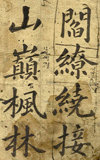 閻繚繞接
山巔楓林